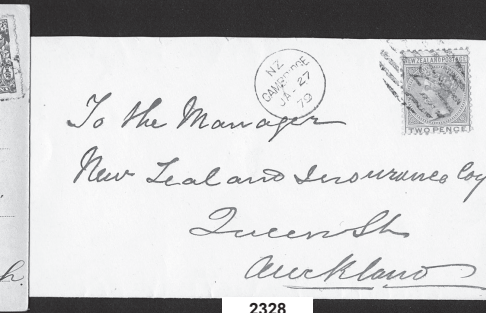 NZ
CAMBRIDGE
JA-27
79
NEW ZEALAND POSTAGE
TWO PENCE
To the Manager
New Zealand Insurance Coy
Queen St
Auckland
h.
2328